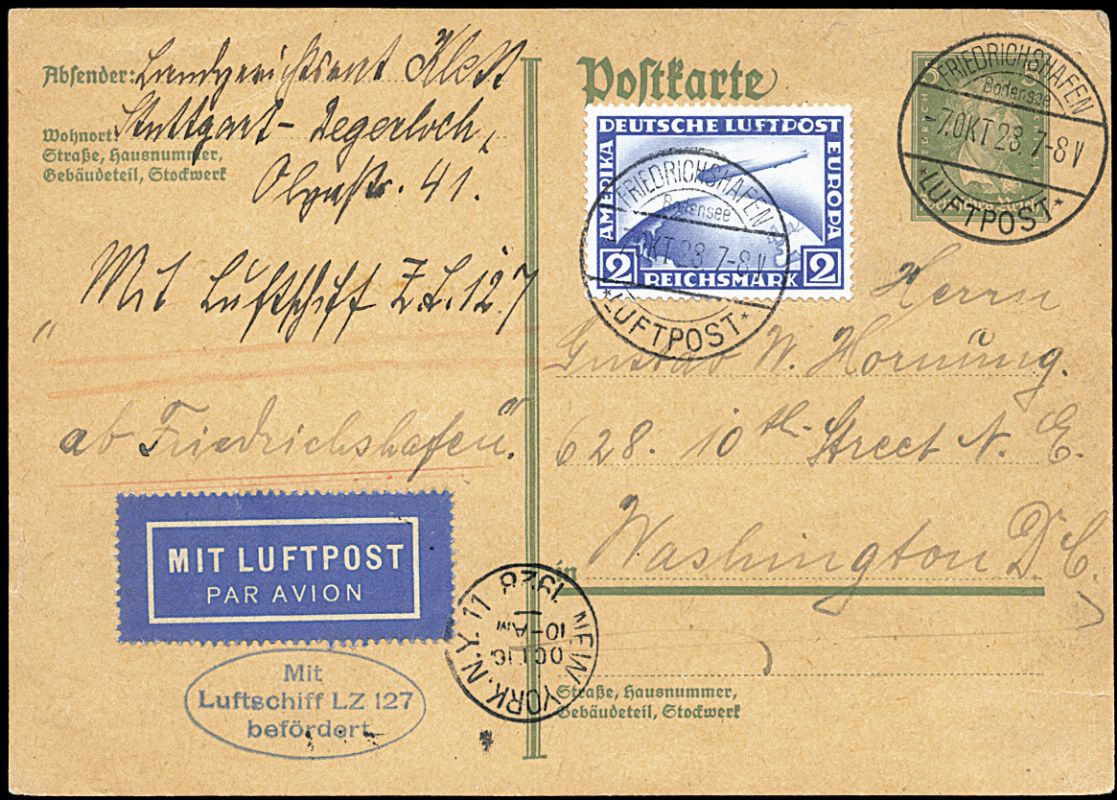 Absender: Landgerichtsrat Klett
Wohnort: Stuttgart-Degerloch,
Straße, Hausnummer,
Gebäudeteil, Stockwerk
41.
"Mit Luftschiff L.Z. 127
ab Friedrichshafen".
MIT LUFTPOST
PAR AVION
Mit
Luftschiff LZ 127
befördert
Postkarte
DEUTSCHE LUFTPOST
AMERIKA
EUROPA
2 REICHSMARK 2
FRIEDRICHSHAFEN
Bodensee
7.OKT 28 7-8 V
*LUFTPOST*
FRIEDRICHSHAFEN
Bodensee
-7.OKT 28 7-8 V
*LUFTPOST*
Herrn
Gustav W. Hornung.
628. 10th Street N. E.
in Washington D.C.
Straße, Hausnummer,
Gebäudeteil, Stockwerk
NEW YORK. N.Y. 11 1928
OCT 16
10-AM